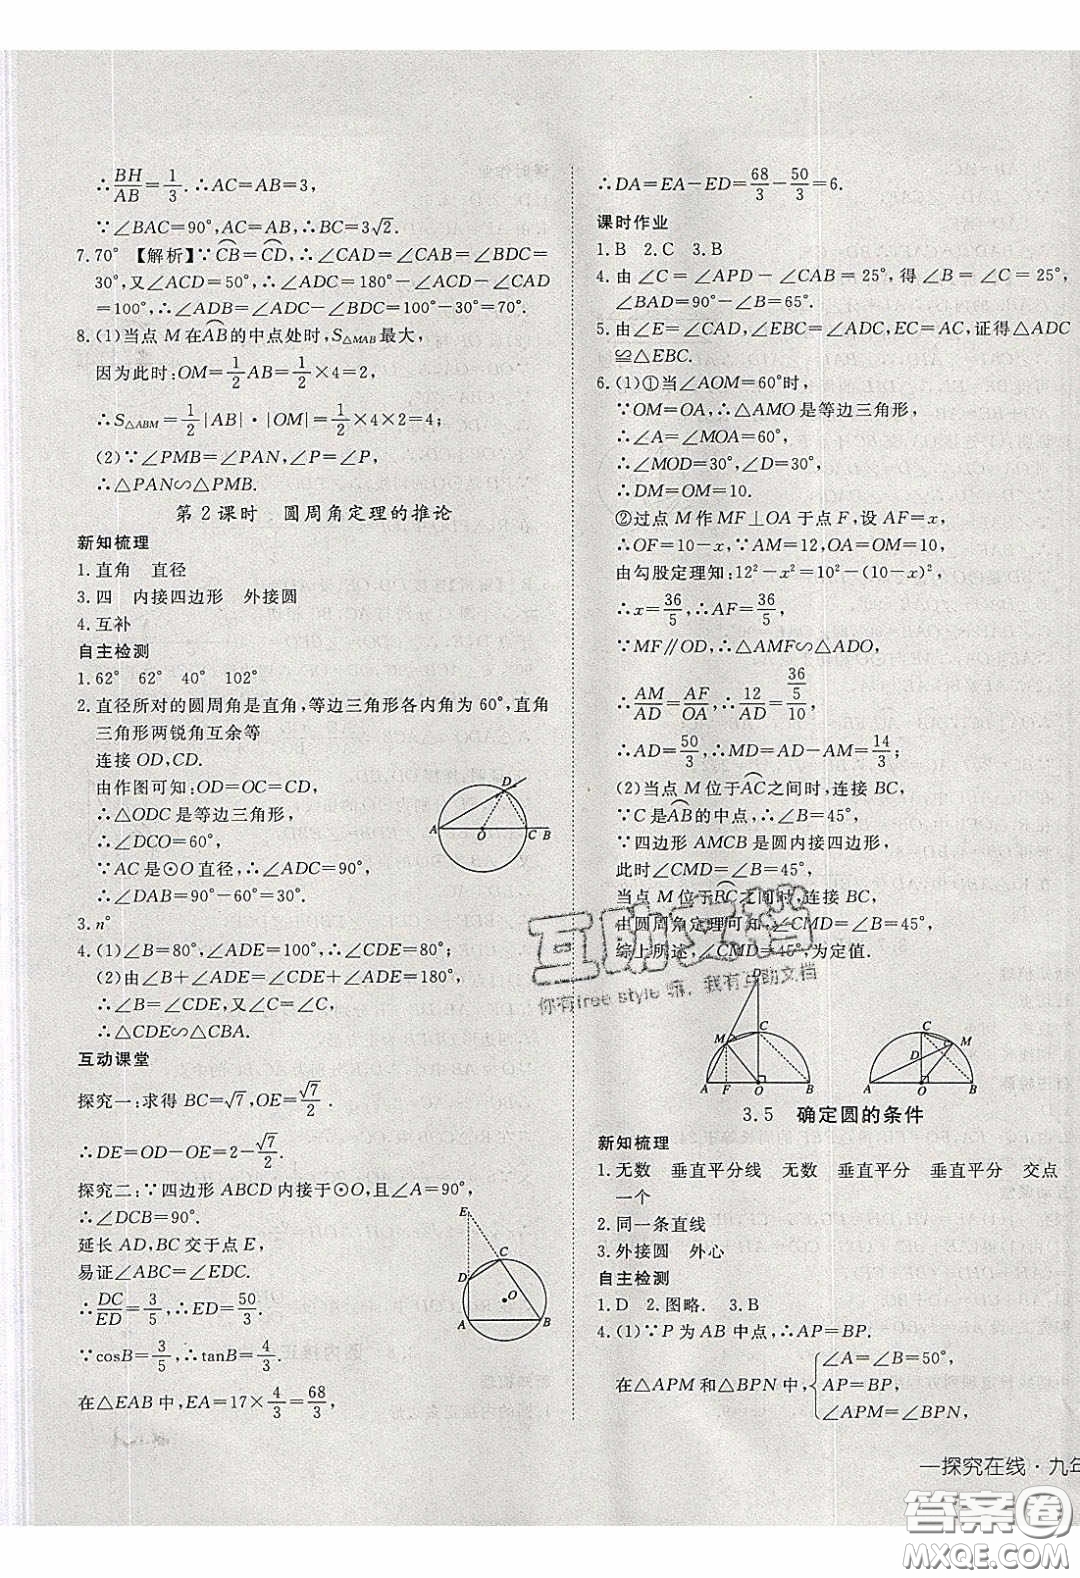 ∴BH/AB=1/3. ∴AC=AB=3,
∵∠BAC=90°,AC=AB,∴BC=3√2.
7.70° 【解析】∵⌒CB=⌒CD,∴∠CAD=∠CAB=∠BDC=
30°,又∠ACD=50°,∴∠ADC=180°-∠ACD-∠CAD
=100°,∴∠ADB=∠ADC-∠BDC=100°-30°=70°.
8.(1)当点 M 在⌒AB的中点处时,S△MAB最大,
因为此时:OM=1/2AB=1/2×4=2,
∴S△ABM=1/2|AB|·|OM|=1/2×4×2=4;
(2)∵∠PMB=∠PAN,∠P=∠P,
∴△PAN∽△PMB.
第 2 课时 圆周角定理的推论
新知梳理
1.直角 直径
3.四 内接四边形 外接圆
4.互补
自主检测
1.62° 62° 40° 102°
2.直径所对的圆周角是直角,等边三角形各内角为 60°,直角
三角形两锐角互余等
连接 OD,CD.
由作图可知:OD=OC=DC,
∴△ODC 是等边三角形,
∴∠DCO=60°,
∵AC 是⊙O 直径,∴∠ADC=90°,
∴∠DAB=90°-60°=30°.
D
A O C B
3.n°
4.(1)∠B=80°,∠ADE=100°,∴∠CDE=80°;
(2)由∠B+∠ADE=∠CDE+∠ADE=180°,
∴∠B=∠CDE,又∠C=∠C,
∴△CDE∽△CBA.
互动课堂
探究一:求得 BC=√7,OE=√7/2.
∴DE=OD-OE=2-√7/2.
探究二:∵四边形 ABCD 内接于⊙O,且∠A=90°,
∴∠DCB=90°.
延长 AD,BC 交于点 E,
易证∠ABC=∠EDC.
∴DC/ED=3/5,∴ED=50/3.
∵cosB=3/5,∴tanB=4/3.
在△EAB 中,EA=17×4/3=68/3,
E
C
D
O
A B
∴DA=EA-ED=68/3-50/3=6.
课时作业
1.B 2.C 3.B
4.由∠C=∠APD-∠CAB=25°,得∠B=∠C=25°,
∠BAD=90°-∠B=65°.
5.由∠E=∠CAD,∠EBC=∠ADC,EC=AC,证得△ADC
≌△EBC.
6.(1)①当∠AOM=60°时,
∵OM=OA,∴△AMO 是等边三角形,
∴∠A=∠MOA=60°,
∴∠MOD=30°,∠D=30°,
∴DM=OM=10.
②过点 M 作 MF⊥OA 于点 F,设 AF=x,
∴OF=10-x,∵AM=12,OA=OM=10,
由勾股定理知:12²-x²=10²-(10-x)²,
∴x=36/5,∴AF=36/5,
∵MF∥OD,∴△AMF∽△ADO,
∴AM/AD=AF/OA,∴12/AD=(36/5)/10,
∴AD=50/3,∴MD=AD-AM=14/3;
(2)当点 M 位于⌒AC之间时,连接 BC,
∵C 是⌒AB的中点,∴∠B=45°,
∵四边形 AMCB 是圆内接四边形,
此时∠CMD=∠B=45°,
当点 M 位于⌒BC之间时,连接 BC,
由圆周角定理可知,∠CMD=∠B=45°,
综上所述,∠CMD=45°,为定值.
互助文档
你有free style 嘛, 我有互助文档
D
M C
A F O B
C M
D
A O B
3.5 确定圆的条件
新知梳理
1.无数 垂直平分线 无数 垂直平分 垂直平分 交点
一个
2.同一条直线
3.外接圆 外心
自主检测
1.D 2.图略. 3.B
4.(1)∵P 为 AB 中点,∴AP=BP.
在△APM 和△BPN 中,{∠A=∠B=50°,
AP=BP,
∠APM=∠BPN,
一探究在线·九年
答案卷
MXQE.COM